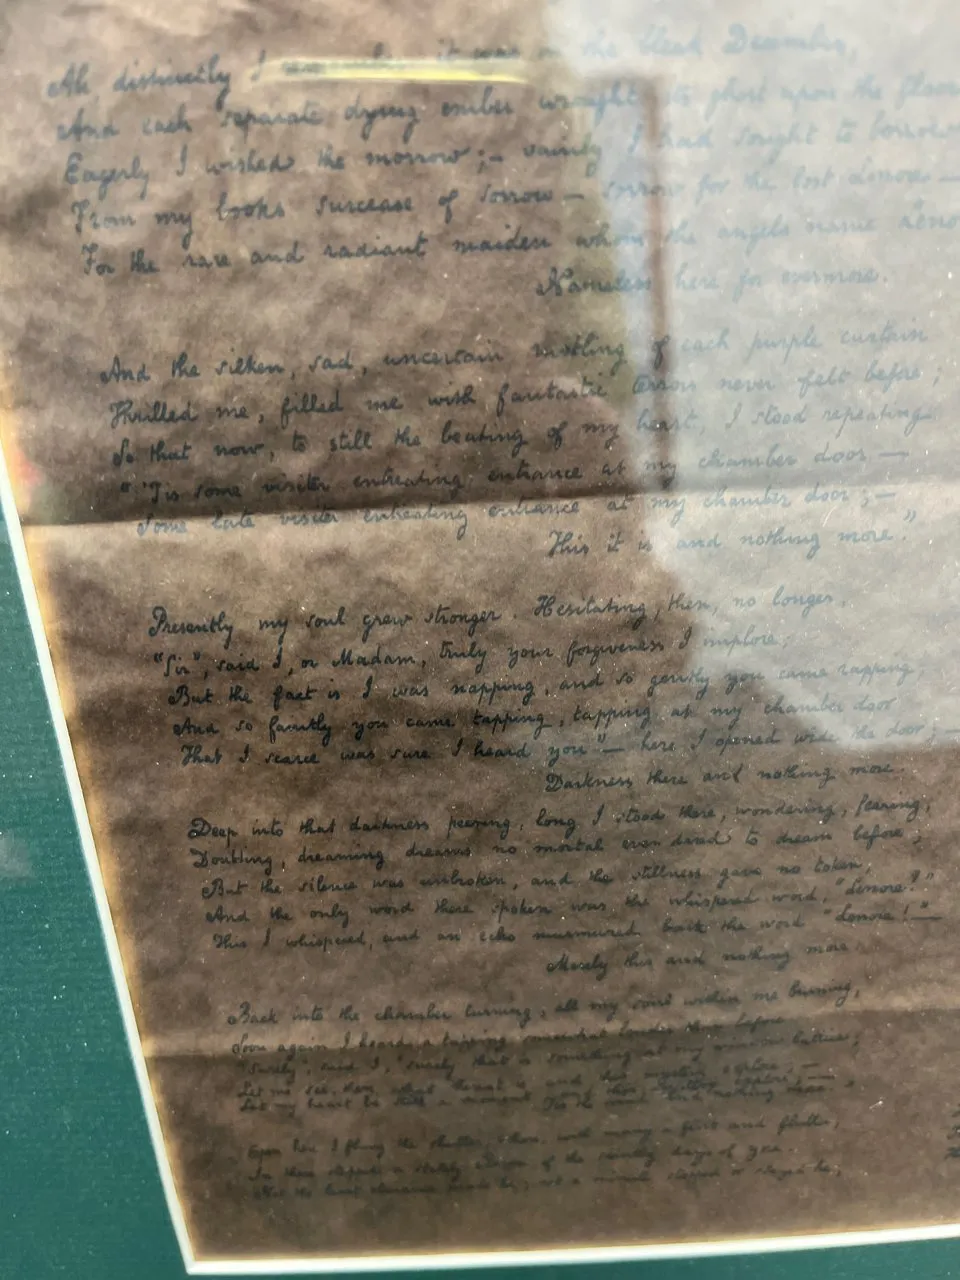 Ah distinctly I it was in the bleak December,
And each separate dying ember wrought its ghost upon the floor
Eagerly I wished the morrow;— vainly I had sought to borrow
From my books surcease of sorrow — sorrow for the lost Lenore —
For the rare and radiant maiden whom the angels name Leno
Nameless here for evermore.
And the silken, sad, uncertain rustling of each purple curtain
Thrilled me, filled me with fantastic terrors never felt before;
So that now, to still the beating of my heart, I stood repeating
"'Tis some visiter entreating entrance at my chamber door —
Some late visiter entreating entrance at my chamber door;—
This it is and nothing more."
Presently my soul grew stronger. Hesitating, then, no longer,
"Sir", said I, or Madam, truly your forgiveness I implore;
But the fact is I was napping, and so gently you came rapping,
And so faintly you came tapping, tapping at my chamber door
That I scarce was sure I heard you"— here I opened wide the door;—
Darkness there and nothing more.
Deep into that darkness peering, long I stood there, wondering, fearing,
Doubting, dreaming dreams no mortal ever dared to dream before;
But the silence was unbroken, and the stillness gave no token,
And the only word there spoken was the whispered word, "Lenore!"
This I whispered, and an echo murmured back the word "Lenore!"—
Merely this and nothing more.
Back into the chamber turning, all my soul within me burning,
Soon again I heard a tapping somewhat louder than before
"Surely", said I, "surely that is something at my window lattice;
Let me see, then, what thereat is and this mystery explore;—
Let my heart be still a moment and this mystery explore;—
'Tis the wind and nothing more.
Open here I flung the shutter, when, with many a flirt and flutter,
In there stepped a stately raven of the saintly days of yore.
Not the least obeisance made he; not a minute stopped or stayed he;